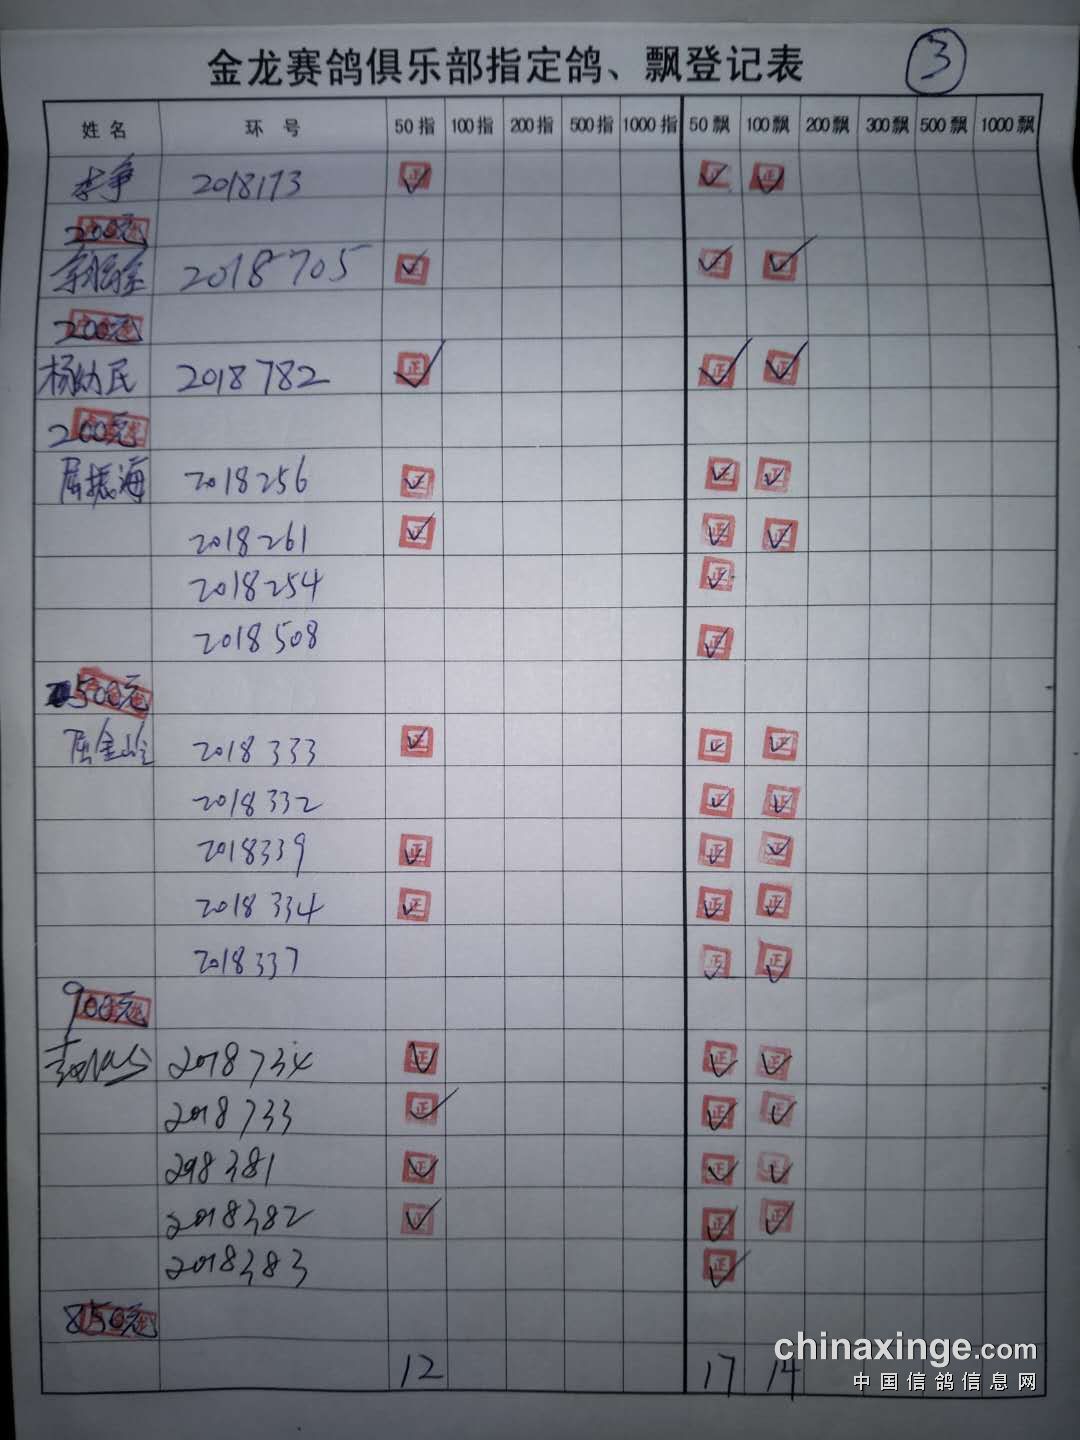 金龙赛鸽俱乐部指定鸽、飘登记表 3
姓名 环号 50指 100指 200指 500指 1000指 50飘 100飘 200飘 300飘 500飘 1000飘
李争 2018173 正 正 正
200元
2018705 正 正 正
200元
杨幼民 2018782 正 正 正
200元
屈振海 2018256 正 正 正
2018261 正 正 正
2018254 正
2018508 正
500元
屈金岭 2018333 正 正 正
2018332 正 正
2018339 正 正 正
2018334 正 正 正
2018337 正 正
900元
2018734 正 正 正
2018733 正 正 正
2018381 正 正 正
2018382 正 正 正
2018383 正
850元
12 17 14
chinaxinge.com
中国信鸽信息网